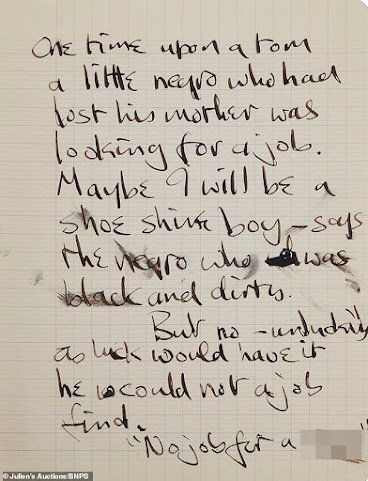 One time upon a tom
a little negro who had
lost his mother was
looking for a job.
Maybe I will be a
shoe shine boy – says
the negro who was
black and dirty.
But no – unluckily
as luck would have it
he could not a job
find.
"No job for a "
© Julien's Auctions/BNPS